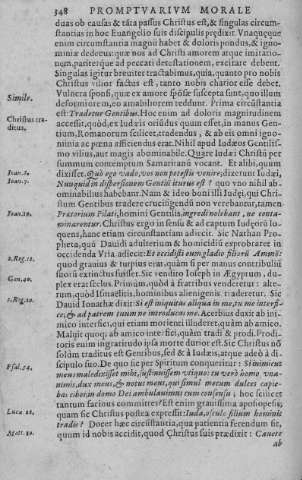 348 PROMPTVARIVM MORALE
duas ob causas & tâta passus Christus est, & singulas circum-
stantias in hoc Euangelio suis discipulis prædixit. Vnaquæque
enim circumstantia magni habet & doloris pondus, & igno-
miniæ dedecus: quæ nos ad Christi amorem atque imitatio-
nem, pariterque ad peccati detestationem, excitare debent.
Singulas igitur breuiter tractabimus, quia, quanto pro nobis
Christus vilior factus est, tanto nobis charior esse debet.
Simile. Vulnera sponsi, quæ ex amore spôsæ suscepta sunt, quo illum
deformiorem, eo amabiliorem reddunt. Prima circûstantia
Christus traditus. est: Tradetur Gentibus. Hoc enim ad doloris magnitudinem
accessit, quòd, ex Iudæis oriûdus quum esset, in manus Gen-
tium, Romanorum scilicet, tradendus, & ab eis omni igno-
minia ac pœna afficiendus erat. Nihil apud Iudæos Gentilis-
mo vilius, aut magis abominabile. Quare Iudæi Christû per
summum contemptum Samaritanû vocant. Et alibi, quum
Ioan. 8. dixisset. Quò ego vado, vos non potestis venire, dixerunt Iudæi,
Ioan. 7. Nunquid in dispersionem Gentiû iturus est? quo vno nihil ab-
ominabilius habebant. Nam & ideo boni illi Iudęi, qui Chri-
stum Gentibus tradere cruci figendû non verebantur, tamen
Ioan. 18. Prætorium Pilati, hominis Gentilis, ingredi nolebant, ne conta-
minarentur. Christus ergo in sensu & ad captum Iudęorû lo-
quens, hanc etiam circumstantiam adiecit. Sic Nathan Pro-
pheta, quû Dauidi adulterium & homicidiû exprobraret in
2. Reg. 12. occidenda Vria adiecit: Et occidisti eum gladio filiorû Ammô:
quod grauius & turpius erat, quàm si per manus contribuliû
Gen. 40. suorû extinctus fuisset. Sic vendito Ioseph in Ægyptum, du-
plex erat scelus. Primum, quòd à fratribus venderetur: alte-
rum, quòd Ismaëlitis, hominibus alienigenis traderetur. Sic
1. Reg. 20. Dauid Ionathæ dixit: Si est iniquitas aliqua in me, tu me interfi-
ce, & ad patrem tuum ne introducas me. Acerbius duxit ab ini-
mico interfici, qui etiam morienti illuderet, quàm ab amico.
Maluit quoq; ab amico interfici, quàm tradi & prodi. Prodi-
toris enim ingratitudo ipsa morte durior est. Sic Christus nô
solùm traditus est Gentibus, sed & à Iudæis, atque adeò à di-
Psal. 54. scipulo suo. De quo sic per Spiritum conqueritur: Si inimicus
meus maledixisset mihi, sustinuissem vtique: tu verò homo vna-
nimis, dux meus, & notus meus, qui simul mecum dulces capie-
bas cibos: in domo Dei ambulauimus cum consensu; hoc scilicet
tantum facinus committes? Est enim grauissima apostrophe,
Luca 22. quam sic Christus postea expressit: Iuda, osculo filium hominis
tradis? Docet hæc circûstantia, qua patientia ferendum sit,
Matt. 10. quum id nobis accidit, quod Christus suis prædixit: Cauete
ab